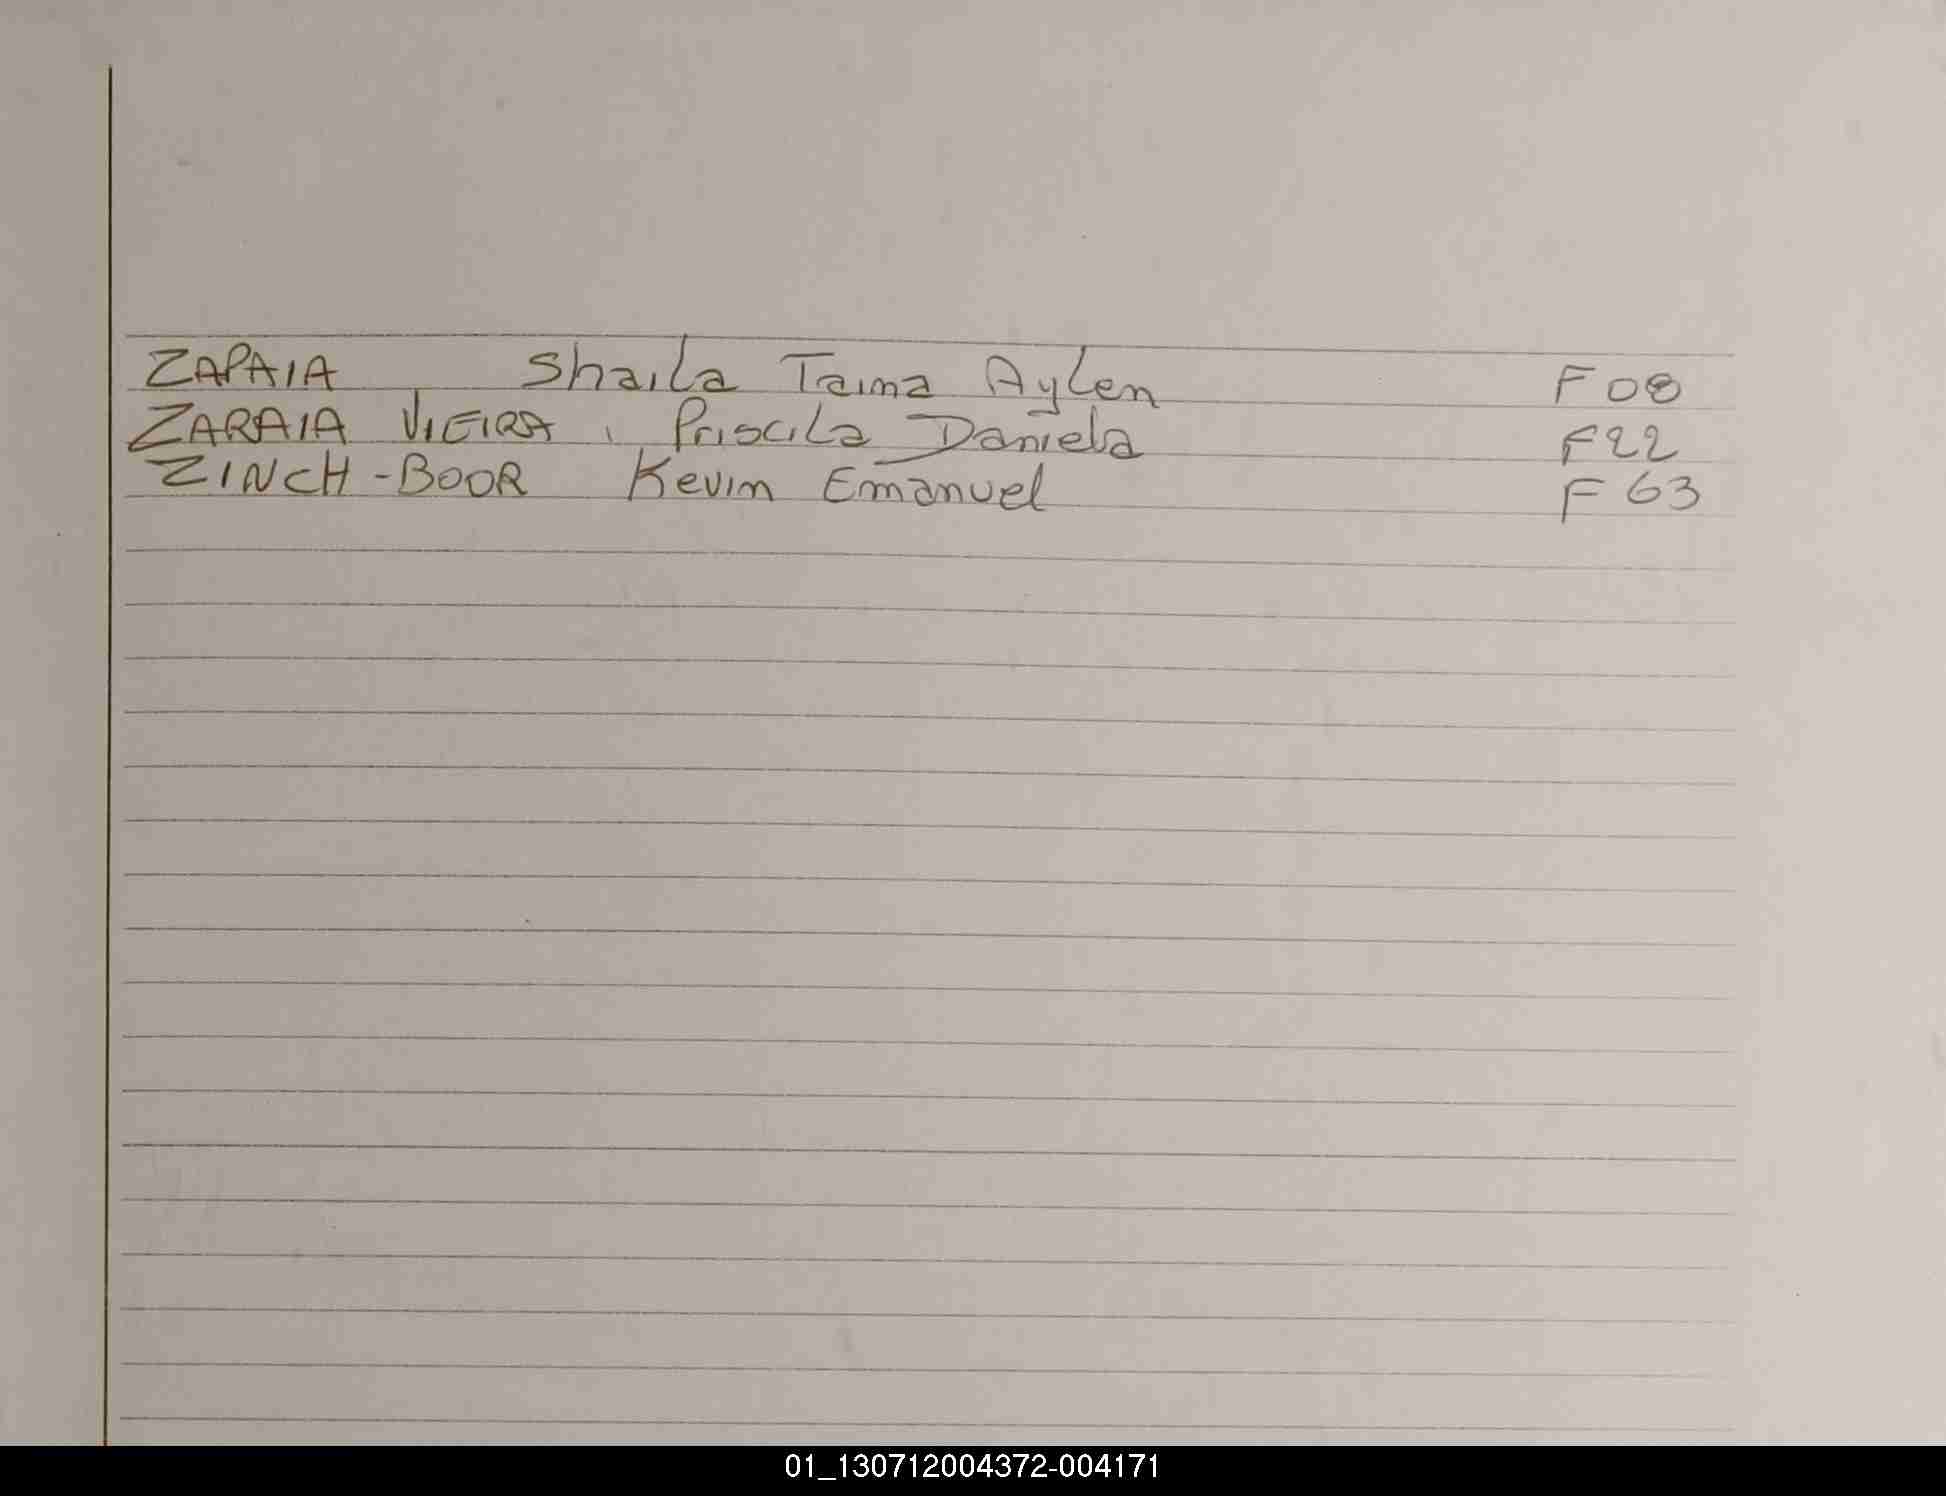 ZAPAIA Shaila Taima Aylen F 08
ZARAIA VIEIRA, Priscila Daniela F22
ZINCH-BOOR Kevin Emanuel F 63
01_130712004372-004171